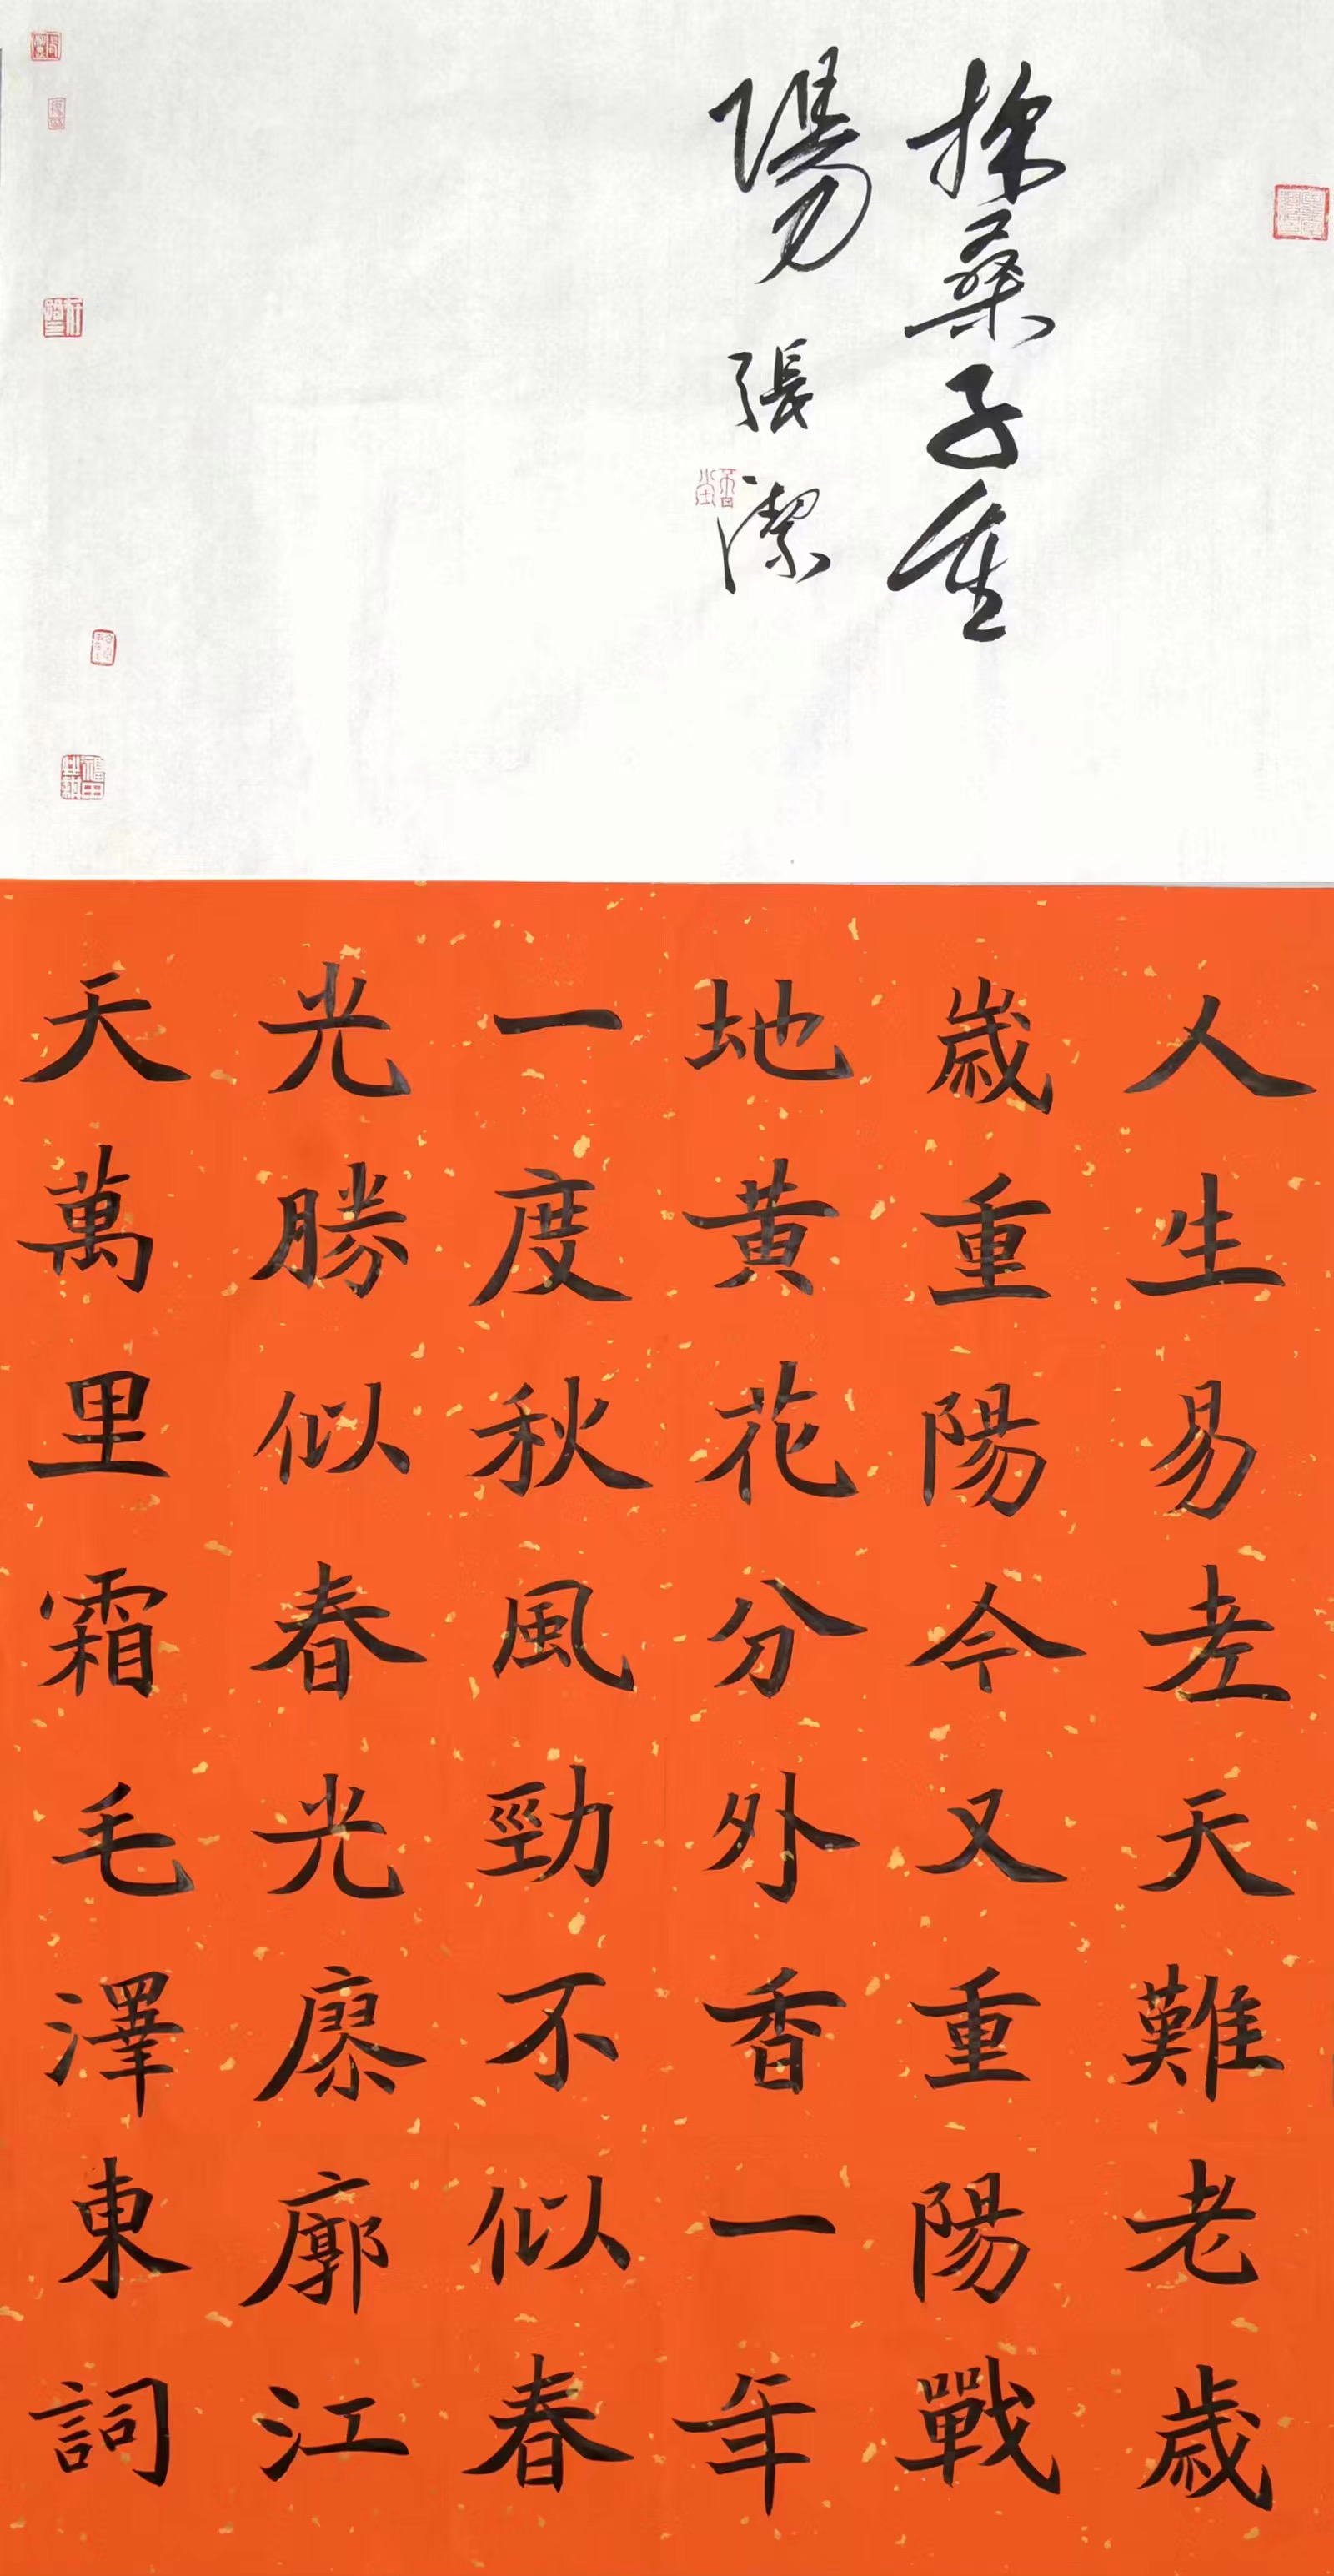 採桑子重
陽 張潔
人生易老天難老歲
歲重陽今又重陽戰
地黄花分外香一年
一度秋風勁不似春
光勝似春光廖廓江
天萬里霜毛澤東詞